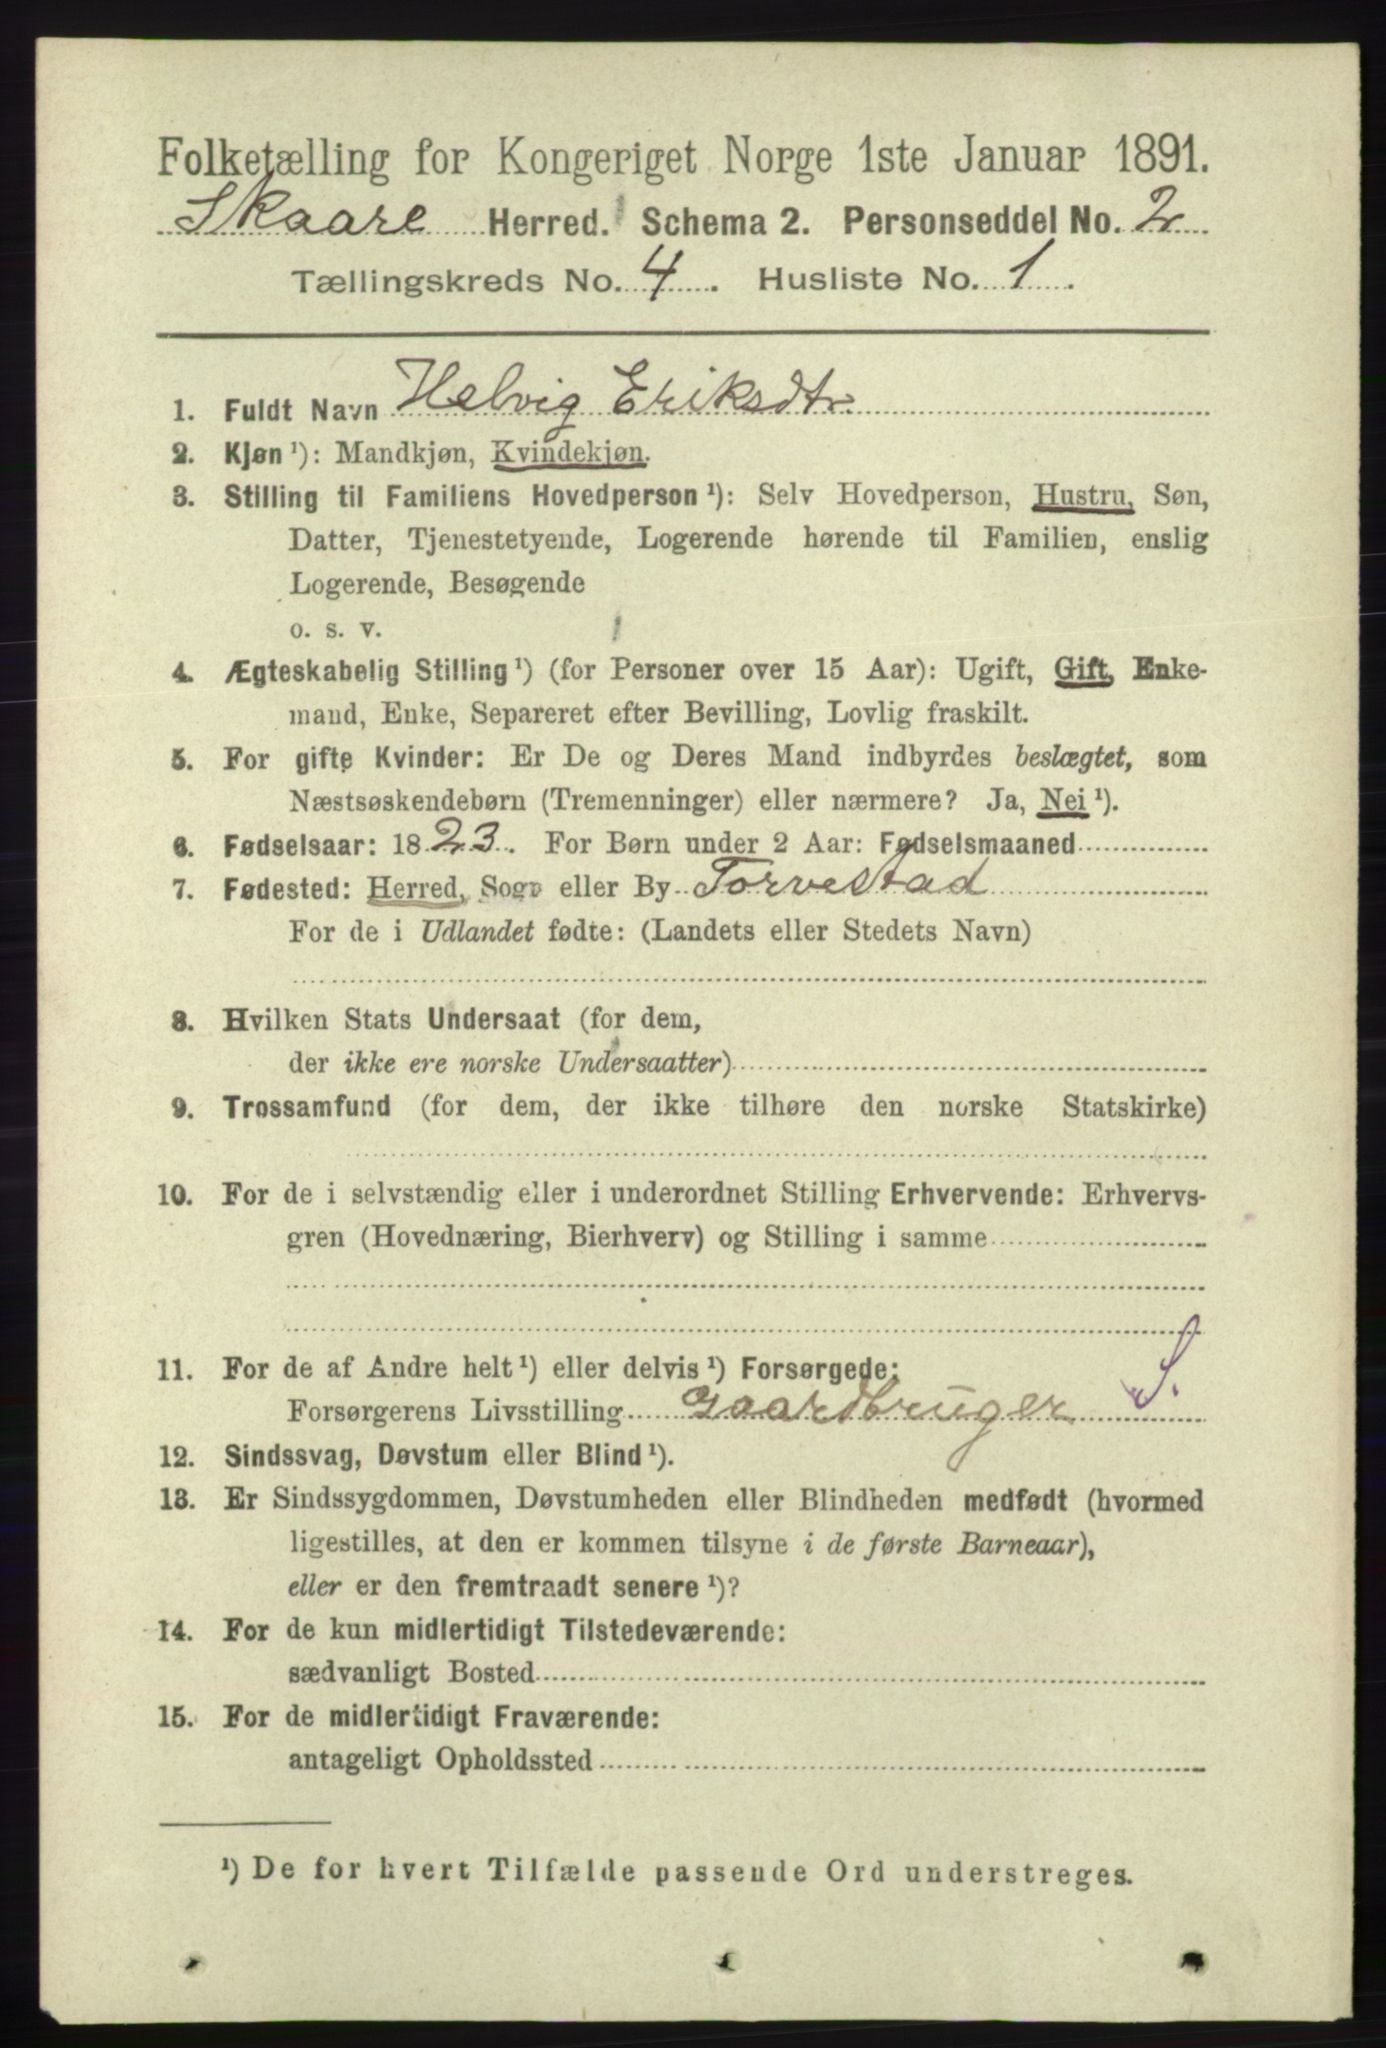 Folketælling for Kongeriget Norge 1ste Januar 1891.
Skaare Herred. Schema 2. Personseddel No. 2
Tællingskreds No. 4. Husliste No. 1.
1. Fuldt Navn Helvig Eriksdtr.
2. Kjøn ¹): Mandkjøn, Kvindekjøn.
3. Stilling til Familiens Hovedperson ¹): Selv Hovedperson, Hustru, Søn,
Datter, Tjenestetyende, Logerende hørende til Familien, enslig
Logerende, Besøgende
o. s. v.
4. Ægteskabelig Stilling ¹) (for Personer over 15 Aar): Ugift, Gift, Enke-
mand, Enke, Separeret efter Bevilling, Lovlig fraskilt.
5. For gifte Kvinder: Er De og Deres Mand indbyrdes beslægtet, som
Næstsøskendebørn (Tremenninger) eller nærmere? Ja, Nei ¹).
6. Fødselsaar: 1823. For Børn under 2 Aar: Fødselsmaaned
7. Fødested: Herred, Sogn eller By Torvestad
For de i Udlandet fødte: (Landets eller Stedets Navn)
8. Hvilken Stats Undersaat (for dem,
der ikke ere norske Undersaatter)
9. Trossamfund (for dem, der ikke tilhøre den norske Statskirke)
10. For de i selvstændig eller i underordnet Stilling Erhvervende: Erhvervs-
gren (Hovednæring, Bierhverv) og Stilling i samme
11. For de af Andre helt ¹) eller delvis ¹) Forsørgede: S.
Forsørgerens Livsstilling Gaardbruger
12. Sindssvag, Døvstum eller Blind ¹).
13. Er Sindssygdommen, Døvstumheden eller Blindheden medfødt (hvormed
ligestilles, at den er kommen tilsyne i de første Barneaar),
eller er den fremtraadt senere ¹)?
14. For de kun midlertidigt Tilstedeværende:
sædvanligt Bosted
15. For de midlertidigt Fraværende:
antageligt Opholdssted
¹) De for hvert Tilfælde passende Ord understreges.